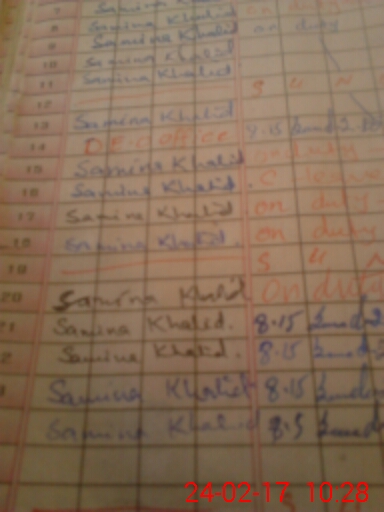 7 Samina Khalid on duty
8 Samina Khalid on duty
9 Samina Khalid
10 Samina Khalid
11 Samina Khalid
12 S " N
13 Samina Khalid
14 D.E.O office 8.15
15 Samina Khalid on duty
16 Samina Khalid. C leave
17 Samina Khalid on duty
18 Samina Khalid. on duty
19 S " N
20 Samina Khalid on duty
21 Samina Khalid. 8.15
2 Samina Khalid. 8.15
Samina Khalid 8.15
Samina Khalid 8.5
24-02-17 10:28